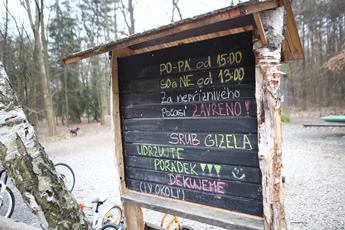 PO-PA' od 15:00
SO a NE od 13:00
Za nepříznivého
Počasí ZAVŘENO!
SRUB GIZELA
UDRŽUJTE
POŘÁDEK !!!
DĚKUJEME
(I V OKOLÍ)